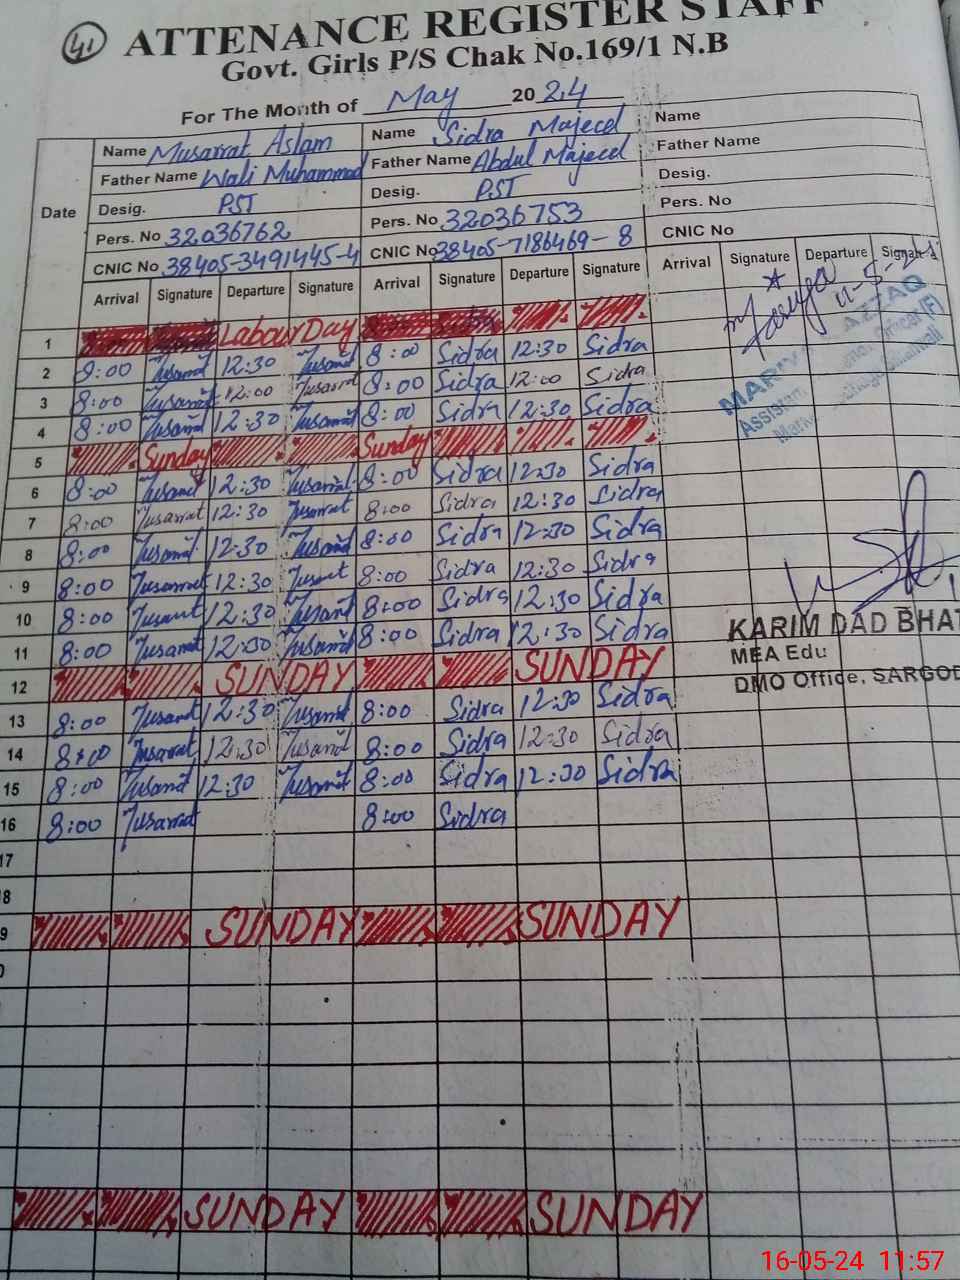 41
ATTENANCE REGISTER STAFF
Govt. Girls P/S Chak No.169/1 N.B
For The Month of May 2024
Date
Name Musarrat Aslam Name Sidra Majeed Name
Father Name Wali Muhammad Father Name Abdul Majeed Father Name
Desig. PST Desig. PST Desig.
Pers. No 32036762 Pers. No 32036753 Pers. No
CNIC No 38405-3491445-4 CNIC No 38405-7186469-8 CNIC No
Arrival Signature Departure Signature Arrival Signature Departure Signature Arrival Signature Departure Signature
1 Labour Day
2 8:00 Musarrat 12:30 Musarrat 8:00 Sidra 12:30 Sidra
3 8:00 Musarrat 12:00 Musarrat 8:00 Sidra 12:00 Sidra
4 8:00 Musarrat 12:30 Musarrat 8:00 Sidra 12:30 Sidra
5 Sunday Sunday
6 8:00 Musarrat 12:30 Musarrat 8:00 Sidra 12:30 Sidra
7 8:00 Musarrat 12:30 Musarrat 8:00 Sidra 12:30 Sidra
8 8:00 Musarrat 12:30 Musarrat 8:00 Sidra 12:30 Sidra
9 8:00 Musarrat 12:30 Musarrat 8:00 Sidra 12:30 Sidra
10 8:00 Musarrat 12:30 Musarrat 8:00 Sidra 12:30 Sidra
11 8:00 Musarrat 12:30 Musarrat 8:00 Sidra 12:30 Sidra
12 SUNDAY SUNDAY
13 8:00 Musarrat 12:30 Musarrat 8:00 Sidra 12:30 Sidra
14 8:00 Musarrat 12:30 Musarrat 8:00 Sidra 12:30 Sidra
15 8:00 Musarrat 12:30 Musarrat 8:00 Sidra 12:30 Sidra
16 8:00 Musarrat 8:00 Sidra
17
8
9 SUNDAY SUNDAY
0
SUNDAY SUNDAY
AZZAQ
Officer (F)
KARIM DAD BHAT
MEA Edu
DMO Office, SARGOD
16-05-24 11:57